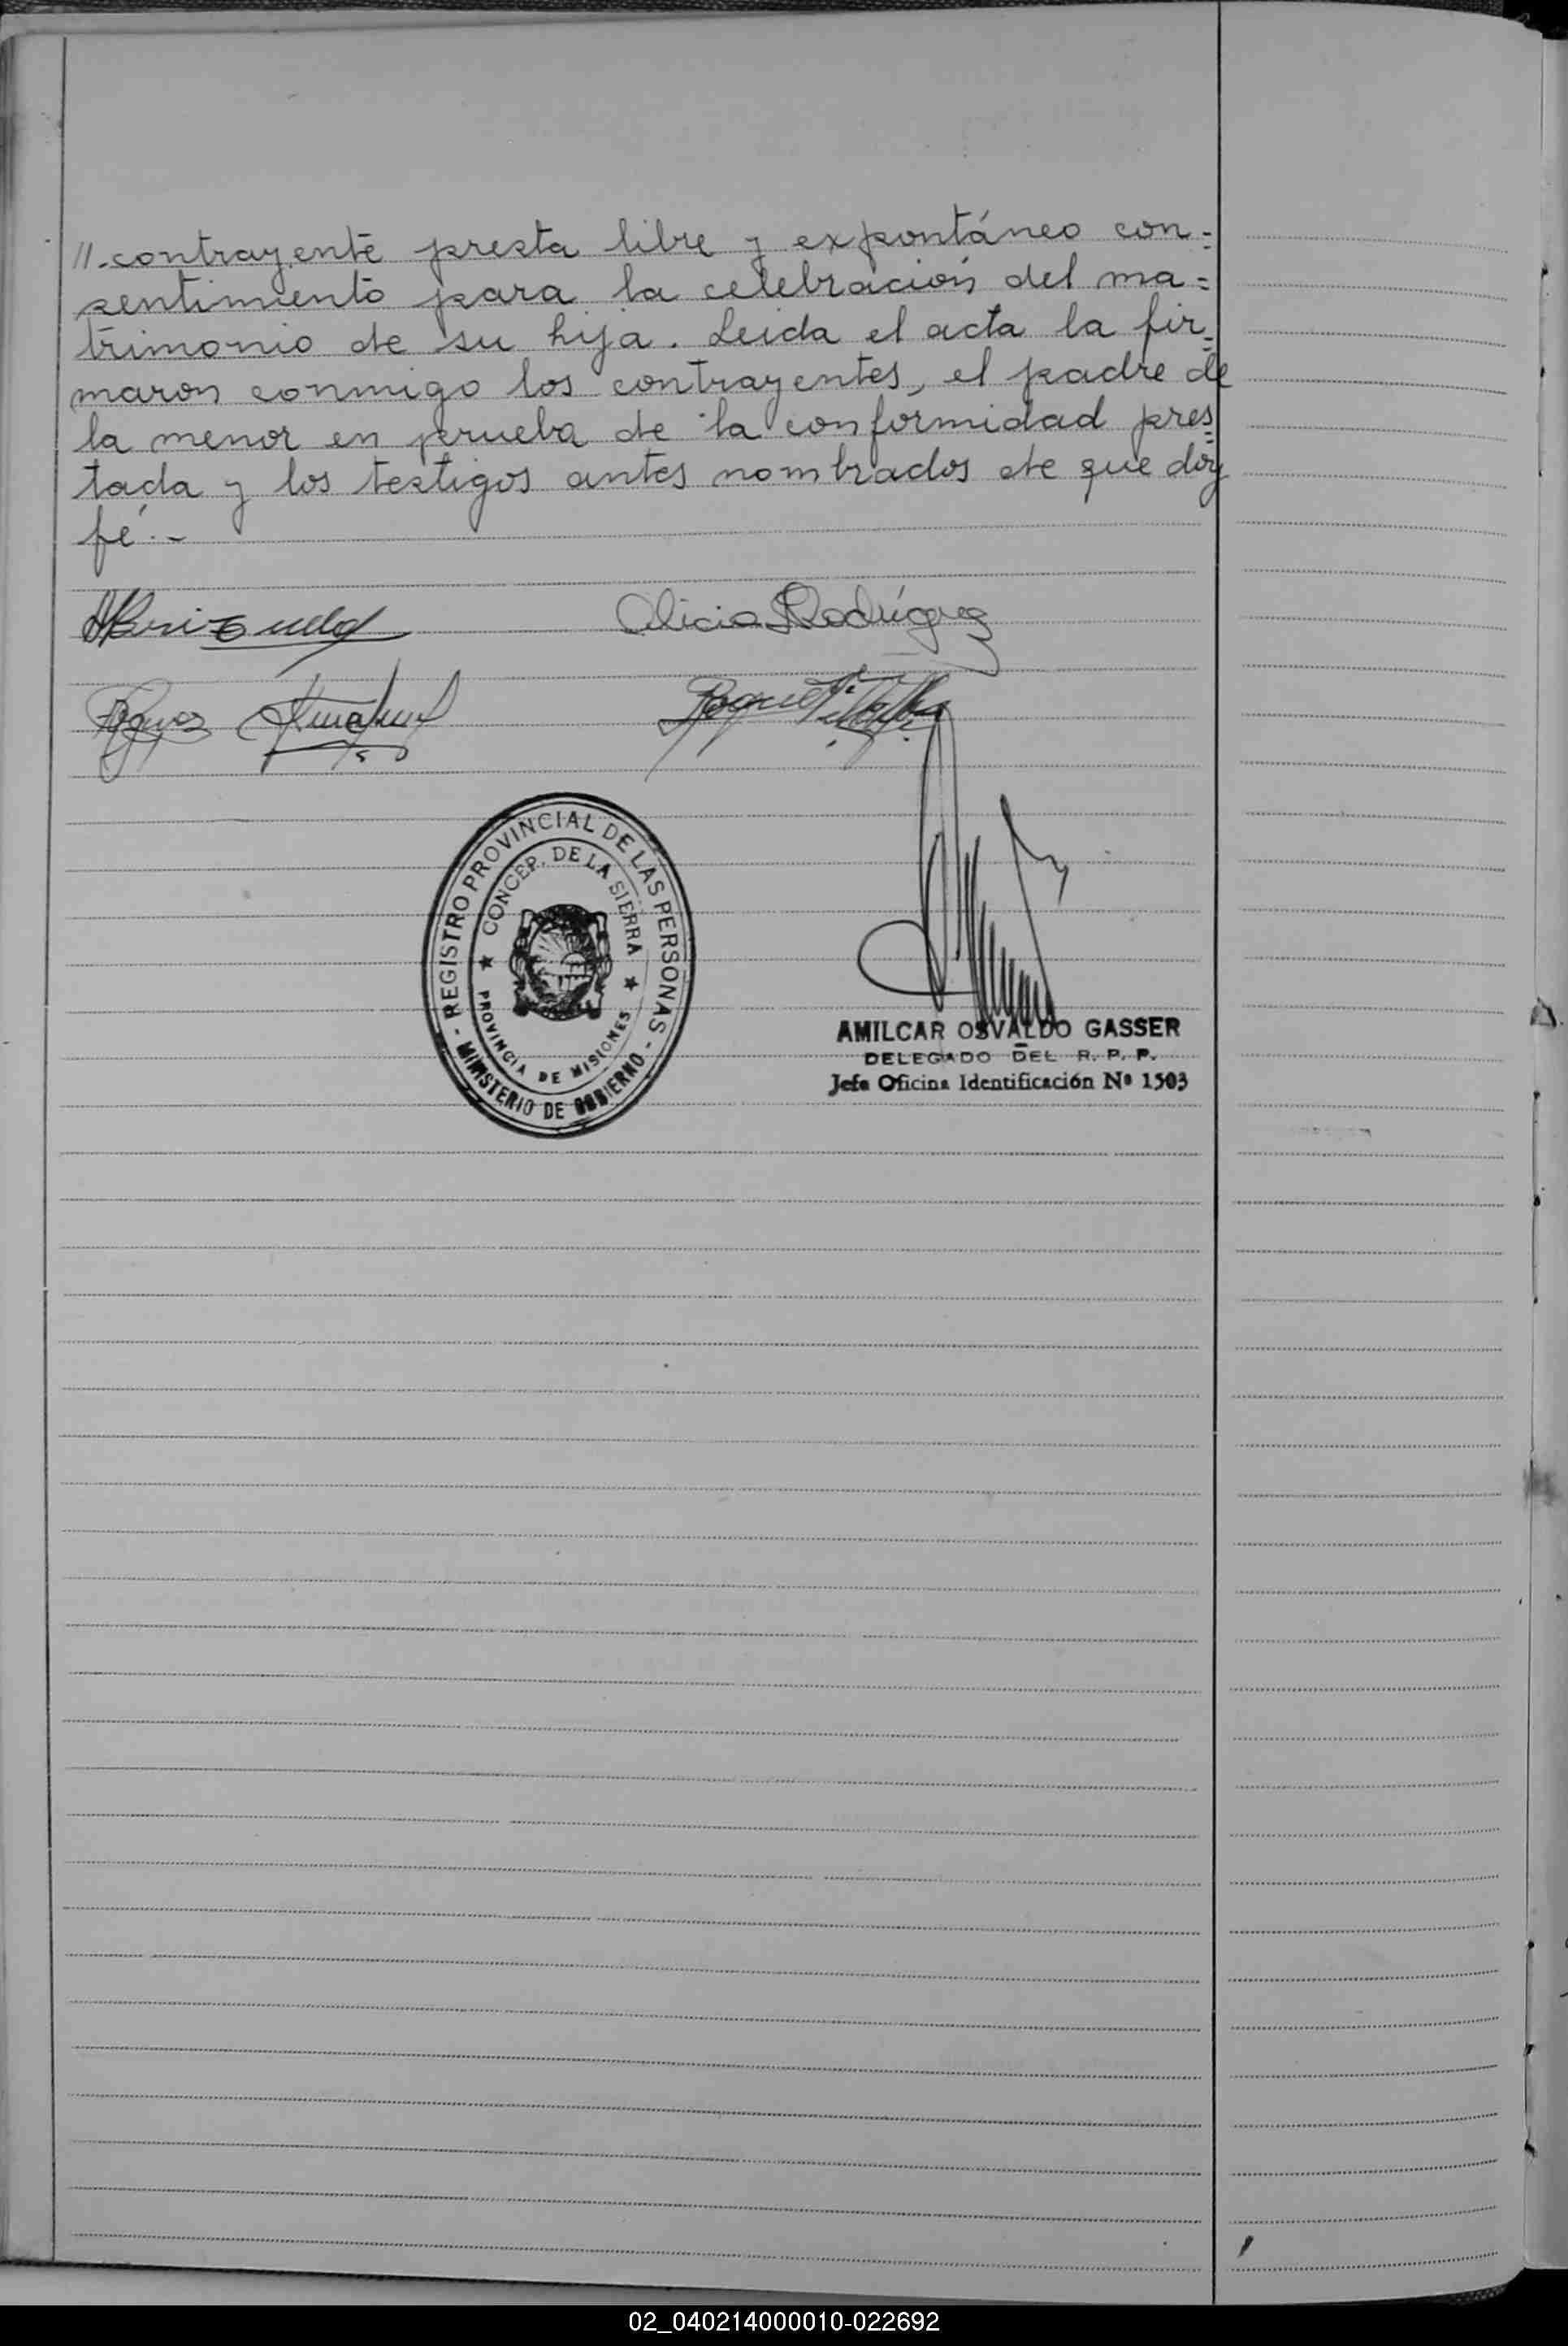 //-contrayente presta libre y expontáneo con=
sentimiento para la celebración del ma=
trimonio de su hija. Leida el acta la fir=
maron conmigo los contrayentes, el padre de
la menor en prueba de la conformidad pres=
tada y los testigos antes nombrados de que doy
fé.-
Alicia Rodríguez
REGISTRO PROVINCIAL DE LAS PERSONAS
- MINISTERIO DE GOBIERNO -
CONCEP. DE LA SIERRA
★ PROVINCIA DE MISIONES ★
AMILCAR OSVALDO GASSER
DELEGADO DEL R. P. P.
Jefe Oficina Identificación Nº 1503
02_040214000010-022692